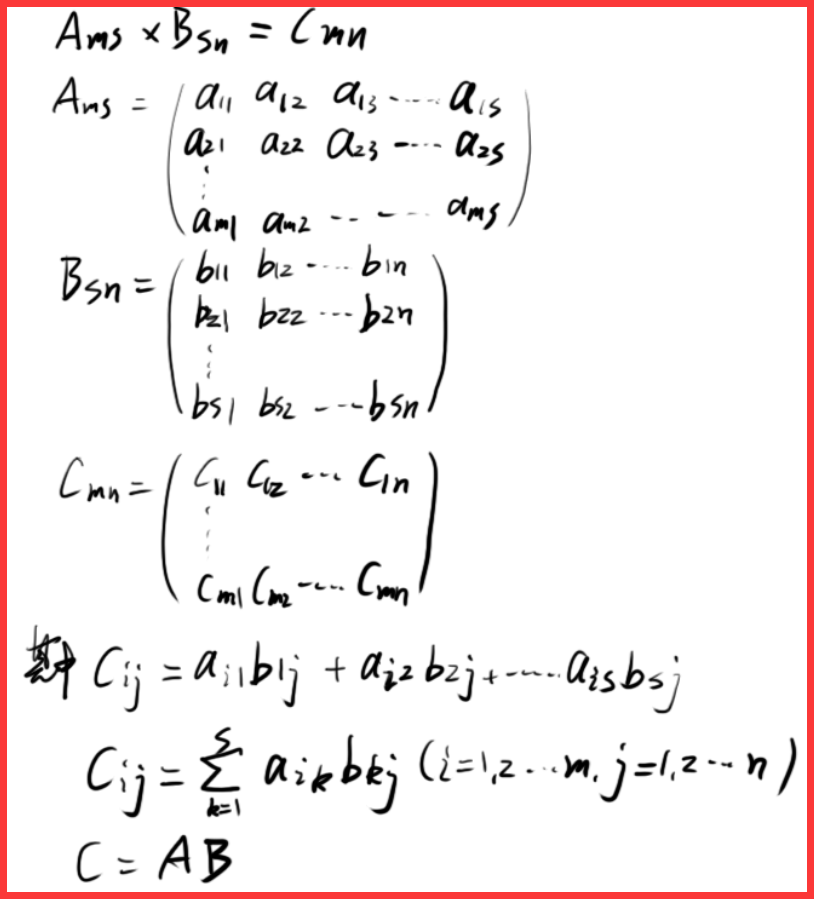 Ams × Bsn = Cmn
Ams = ( a11 a12 a13 ----- a1s
a21 a22 a23 ----- a2s
⋮
am1 am2 -- --- ams )
Bsn = ( b11 b12 ----- b1n
b21 b22 --- b2n
⋮
bs1 bs2 ---- bsn )
Cmn = ( C11 C12 --- C1n
⋮
Cm1 Cm2 ---- Cmn )
其中 Cij = ai1b1j + ai2b2j + ----- aisbsj
Cij = ∑ k=1 s aikbkj (i=1,2 --- m, j=1,2 --- n)
C = AB